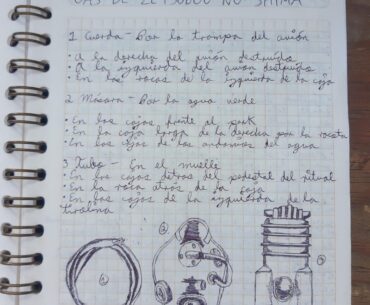 GAS DE ZETSUBOU NO SHIMA
1 Cuerda - Por la trampa del avión
• A la derecha del avión destruido
• A la izquierda del avión destruido
• En las rocas de la izquierda de la caja
2 Máscara - Por la agua verde
• En las cajas, frente al
• En la caja larga de la derecha por la
• En las cajas de los andamios del agua
3 Tubo - En el muelle
• En las cajas detras del pedestal del ritual
• En la roca atras de la caja
• En las cajas de la izquierda de la
tirolina